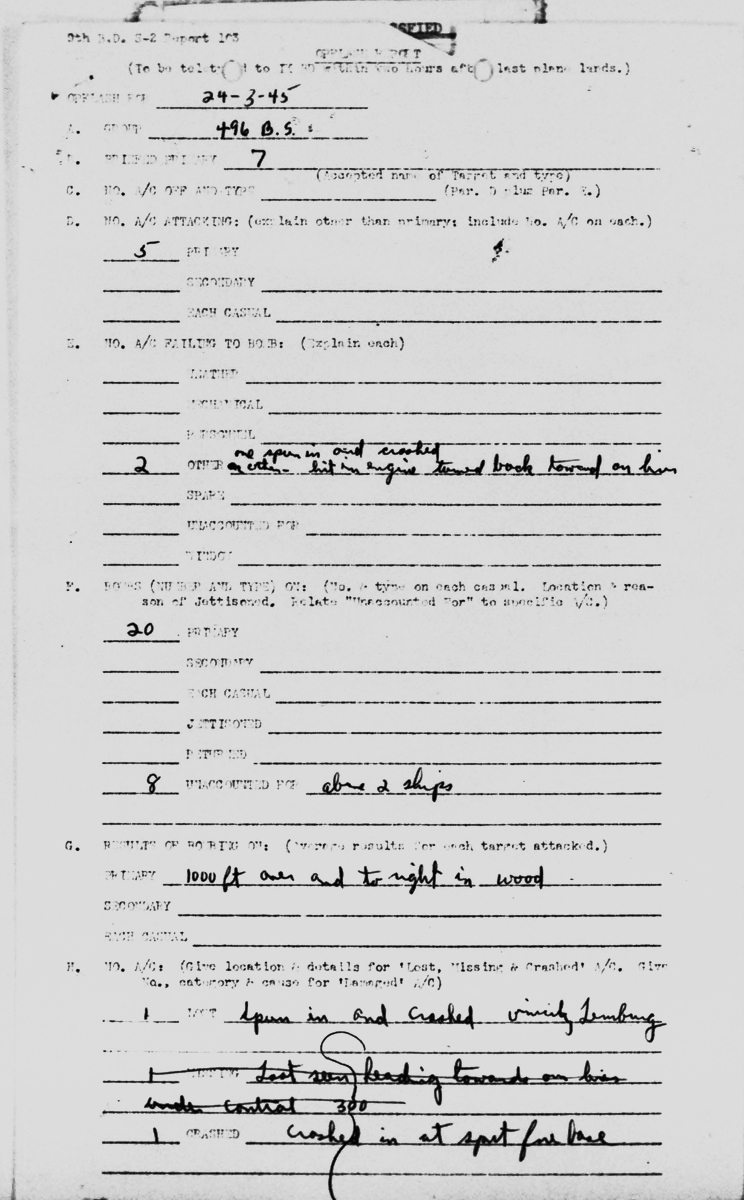 9th B.D. S-2 Report 103
OPFLASH REPORT
(To be to IX BD within two hours after last plane lands.)
OPFLASH FOR 24-3-45
A. GROUP 496 B.S.
PRIMARY 7
(Accepted name of Target and type)
C. NO. A/C OFF AND TYPE (Par. D plus Par. E.)
D. NO. A/C ATTACKING: (explain other than primary; include No. A/C on each.)
5 PRIMARY
SECONDARY
EACH CASUAL
E. NO. A/C FAILING TO BOMB: (Explain each)
WEATHER
MECHANICAL
PERSONNEL
one spun in and crashed
2 OTHER hit in engine turned back toward our lines
SPARE
UNACCOUNTED FOR
WINDOW
F. BOMBS (NUMBER AND TYPE) ON: (No. & type on each casual. Location & rea-
son of Jettisoned. Relate "Unaccounted For" to specific A/C.)
20 PRIMARY
SECONDARY
EACH CASUAL
JETTISONED
RETURNED
8 UNACCOUNTED FOR above 2 ships
G. RESULTS OF BOMBING ON: (Average results for each target attacked.)
PRIMARY 1000 ft over and to right in wood
SECONDARY
EACH CASUAL
H. NO. A/C: (Give location & details for 'Lost, Missing & Crashed' A/C. Give
No., category & cause for 'Damaged' A/C)
1 LOST Spun in and crashed vicinity
1 MISSING Last seen heading towards our lines
under control 300
1 CRASHED crashed in at